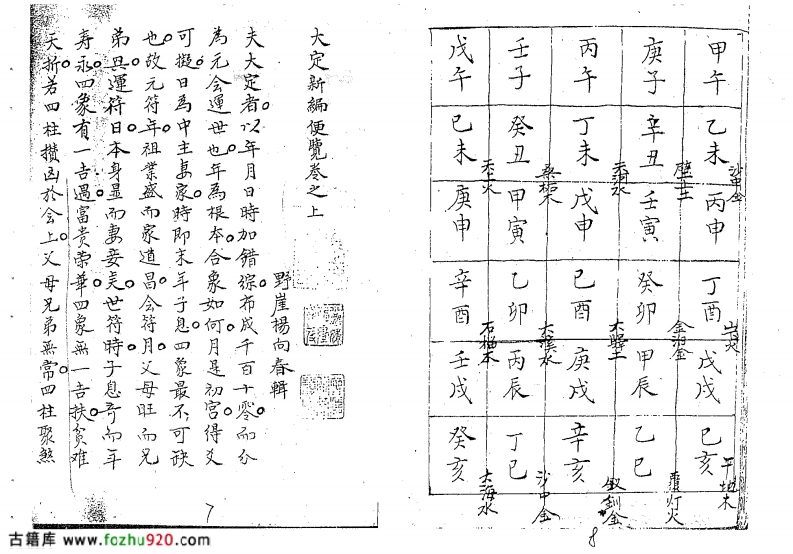 大定新編便覧卷之上
野崖楊向春輯
夫大定者以年月日時加錯綜布成千百十零而分
為元会運世也年為根本合象如何月是初宮得爻
可擬日為中主妻家時即末年子息四象最不可缺
也故元符年祖業盛而家道昌会符月父母旺而兄
弟興運符日本身显而妻妾美世符時子息奇而年
寿永四象有一吉遇富貴荣華四象無一吉扶贫难
夭折若四柱攒凶於会上父母兄弟無常四柱聚煞
7
甲午 乙未 丙申 丁酉 戊戌 己亥
沙中金 山下火 平地木
庚子 辛丑 壬寅 癸卯 甲辰 乙巳
壁上土 金泊金 覆灯火
丙午 丁未 戊申 己酉 庚戌 辛亥
天河水 大驿土 釵釧金
壬子 癸丑 甲寅 乙卯 丙辰 丁巳
桑柘木 大溪水 沙中金
戊午 己未 庚申 辛酉 壬戌 癸亥
天上火 石榴木 大海水
8
古籍库 www.fozhu920.com